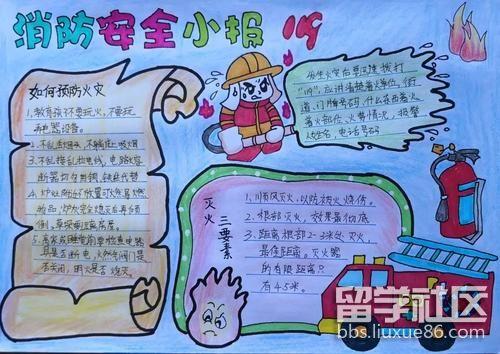 消防安全小报 119
如何预防火灾
1.教育孩子不要玩火，不要玩
弄电器设备。
2.不乱丢烟头，不躺床上吸烟
3.不乱接乱拉电线，电路熔
断器切勿用铜、铁丝代替
4.炉灶附近不放置可燃易燃
物品，炉灰完全熄灭后再倾
倒，草垛要远离房屋。
5.离家或睡觉前要检查电器
具是否断电，火燃气阀门是
否关闭，明火是否熄灭。
发生火灾后要迅速拨打
"119"应讲清着火单位，街
道、门牌号码，什么东西着火
着火部位、火势情况，报警
人姓名，电话号码
灭火三要素
1.顺风灭火，以防被火烧伤。
2.根部灭火，效果最彻底
3.距离根部2-3米处灭火，
最佳距离。灭火器
的有限距离只
有4.5米。
留学社区
bbs.liuxue86.com